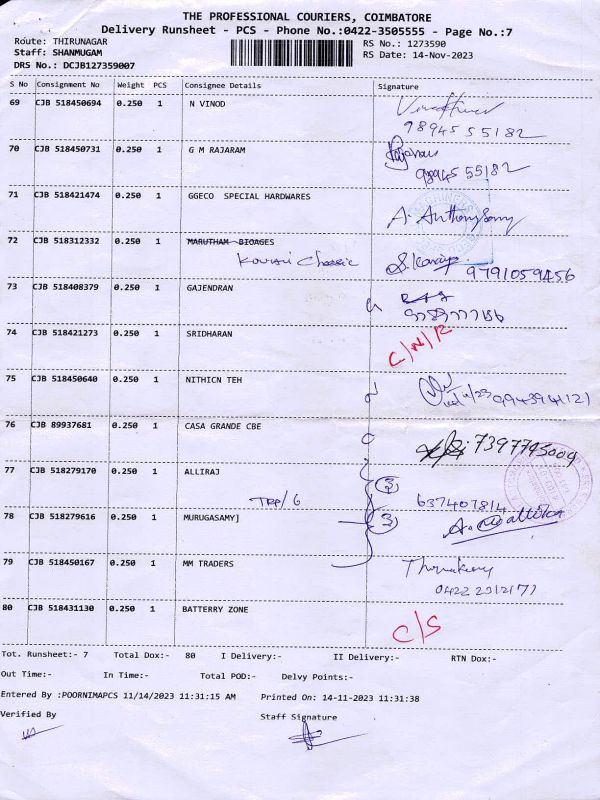 THE PROFESSIONAL COURIERS, COIMBATORE
Delivery Runsheet - PCS - Phone No.:0422-3505555 - Page No.:7
Route: THIRUNAGAR RS No.: 1273590
Staff: SHANMUGAM RS Date: 14-Nov-2023
DRS No.: DCJB127359007
S No Consignment No Weight PCS Consignee Details Signature
69 CJB 518450694 0.250 1 N VINOD
98945 55182
70 CJB 518450731 0.250 1 G M RAJARAM
98945 55182
71 CJB 518421474 0.250 1 GGECO SPECIAL HARDWARES A. Anthonysamy
72 CJB 518312332 0.250 1 MARUTHAM BIOAGES
9791059456
73 CJB 518408379 0.250 1 GAJENDRAN
74 CJB 518421273 0.250 1 SRIDHARAN
75 CJB 518450640 0.250 1 NITHICN TEH
9943941121
76 CJB 89937681 0.250 1 CASA GRANDE CBE
7397745009
77 CJB 518279170 0.250 1 ALLIRAJ
637407814
78 CJB 518279616 0.250 1 MURUGASAMY] 3
79 CJB 518450167 0.250 1 MM TRADERS
80 CJB 518431130 0.250 1 BATTERRY ZONE
C/S
Tot. Runsheet:- 7 Total Dox:- 80 I Delivery:- II Delivery:- RTN Dox:-
Out Time:- In Time:- Total POD:- Delvy Points:-
Entered By :POORNIMAPCS 11/14/2023 11:31:15 AM Printed On: 14-11-2023 11:31:38
Verified By Staff Signature